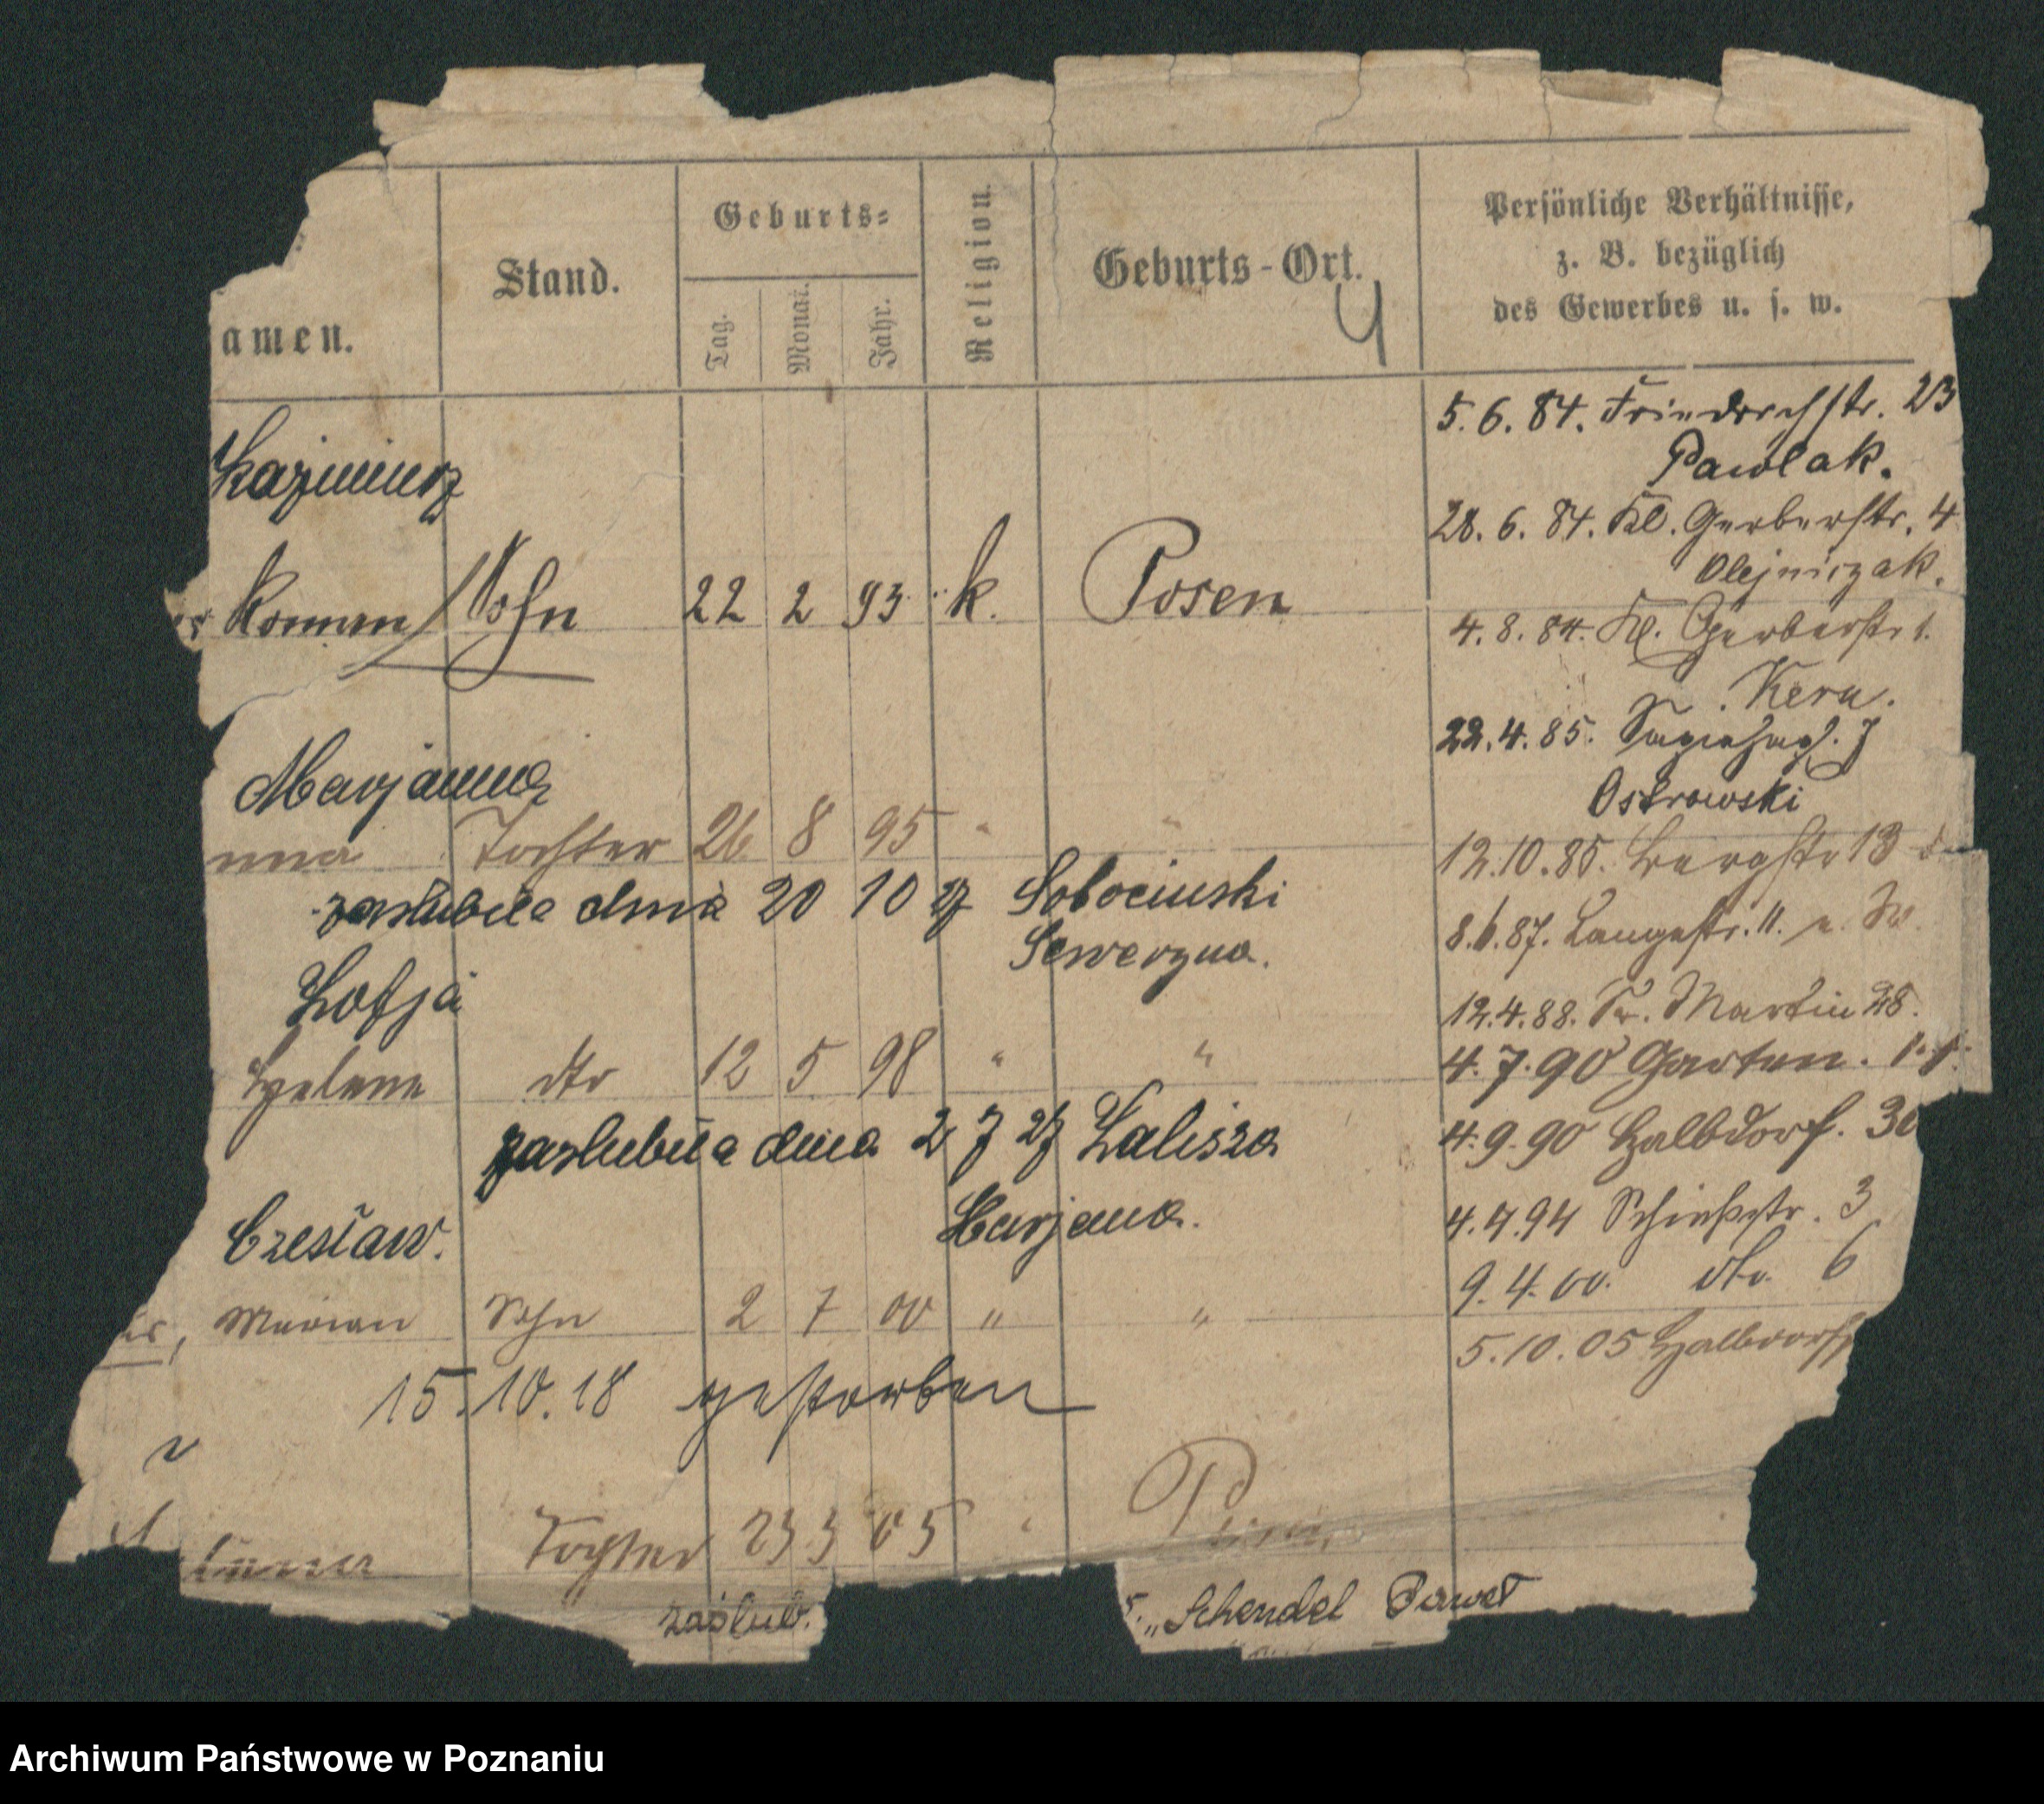 amen.
Stand.
Geburts=
Tag.
Monat.
Jahr.
Religion.
Geburts-Ort.
4
Persönliche Verhältnisse,
z. B. bezüglich
des Gewerbes u. s. w.
Kazimierz
Roman Sohn 22 2 93 k. Posen
Marjanna
nna Tochter 26 8 95 " "
zaślubiła dnia 20 10 27 Sobocinski
Seweryna.
Zofja
Helene dto 12 5 98 " "
zaslubiła dnia 2 7 27 Zalisza
Marjana.
Czesław.
Marian Sohn 2 7 00 " "
15.10.18 gestorben
Tochter 23 3 05
zaślub. "Schendel Paweł
5.6.84. Friedrichstr. 23
Pawlak.
28.6.84. Kl. Gerberstr. 4
Olejniczak.
4.8.84. Kl. Gerberstr 1.
Kern.
22.4.85. Sapiehapl. 7
Ostrowski
12.10.85. Bergstr 13
8.6.87. Langestr. 11.
12.4.88. St. Martin 28.
4.7.90 Garten.
4.9.90 Halbdorf. 30
4.4.94 Schießstr. 3
9.4.00. dto. 6
5.10.05 Halbdorf
Archiwum Państwowe w Poznaniu